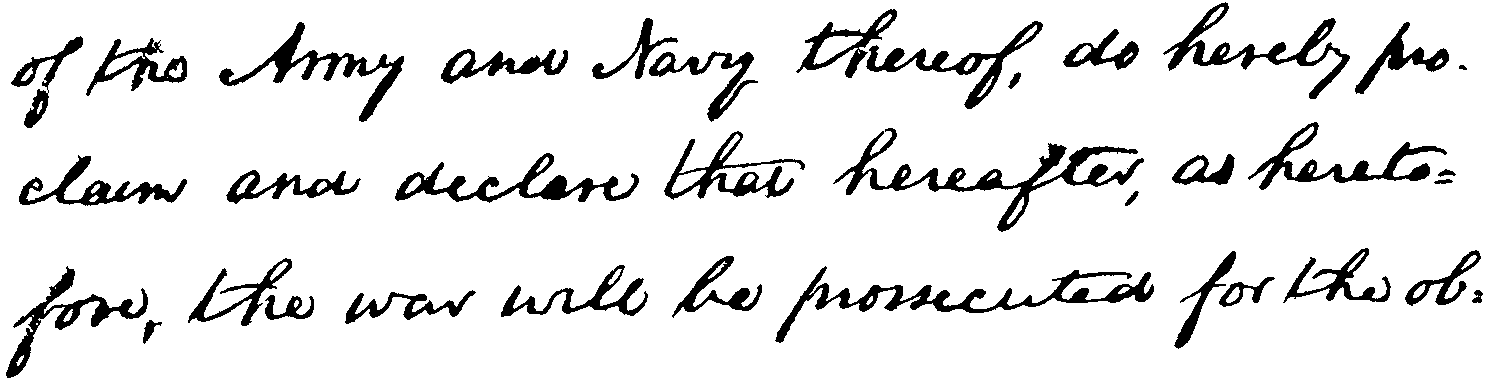 of the Army and Navy thereof, do hereby pro-
claim and declare that hereafter, as hereto=
fore, the war will be prossecuted for the ob=